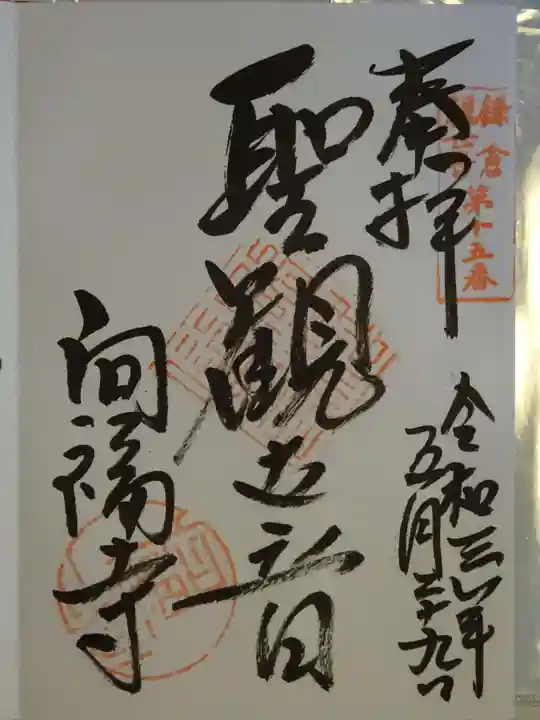 鎌倉第十五番
奉拝
令和三年
五月二十九日
聖観世音
向福寺